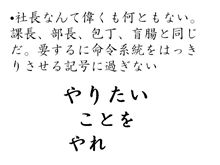 •社長なんて偉くも何ともない。
課長、部長、包丁、盲腸と同じ
だ。要するに命令系統をはっき
りさせる記号に過ぎない
やりたい
ことを
やれ